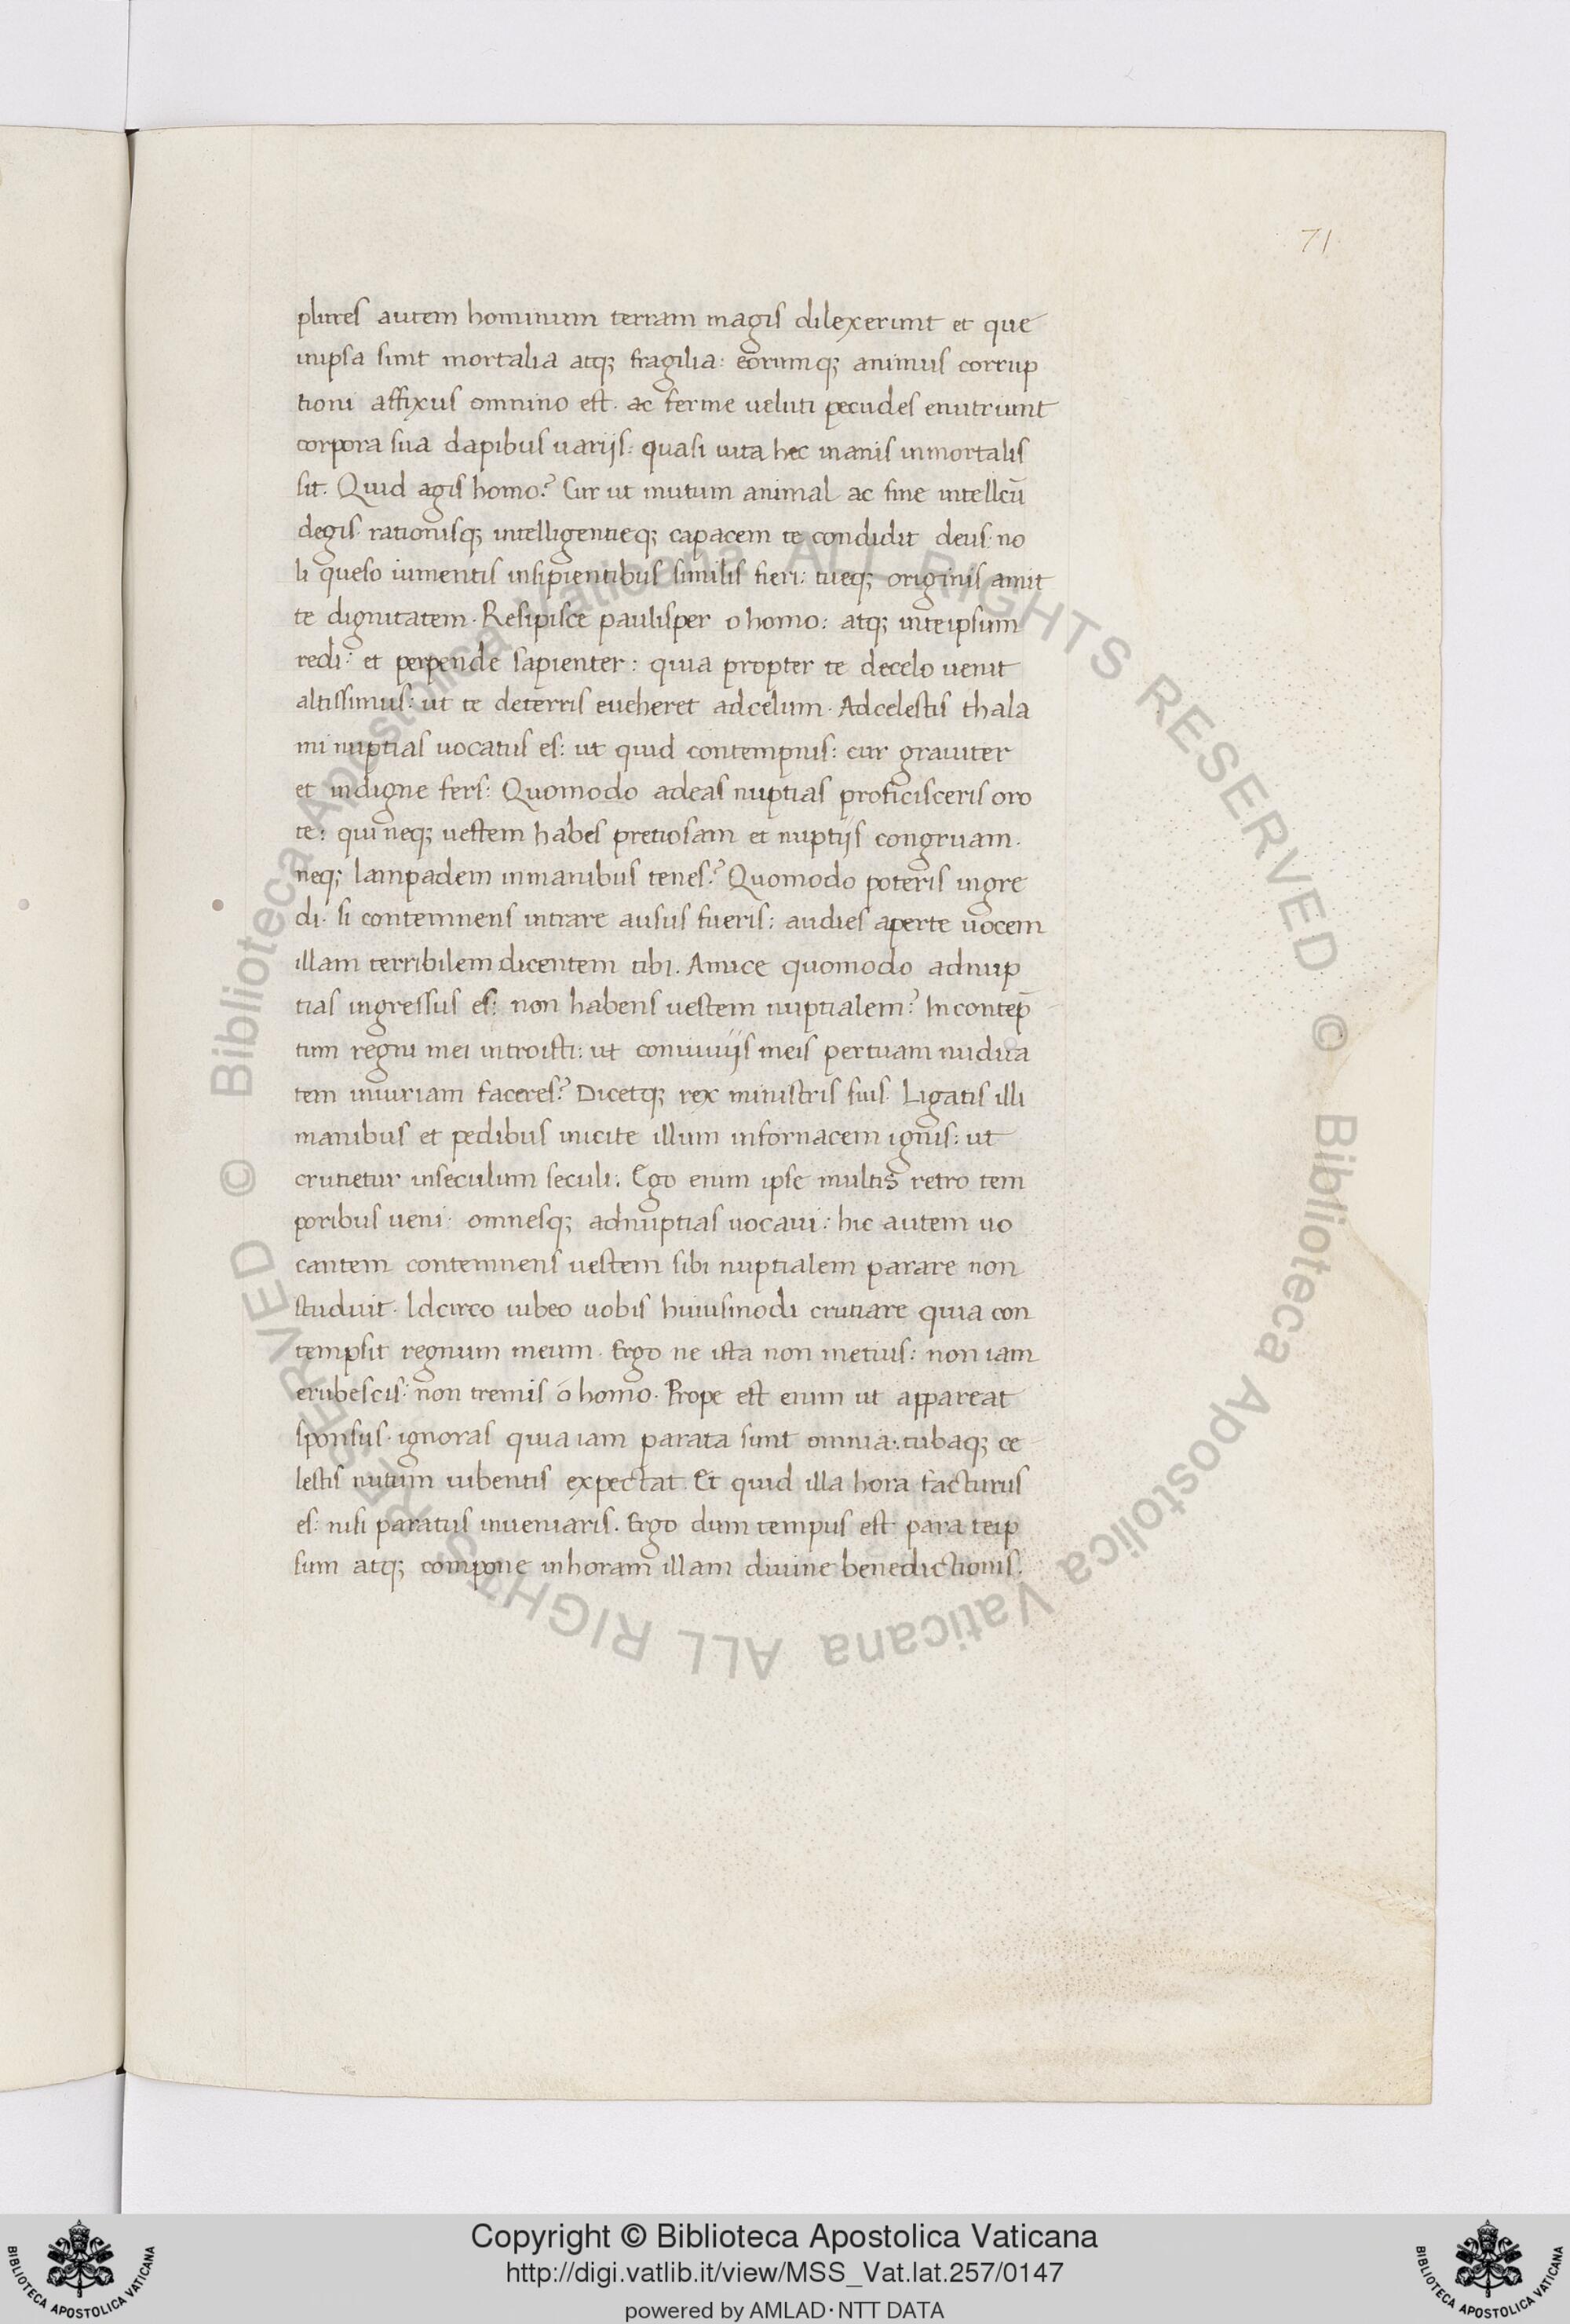 71
plures autem hominum terram magis dilexerunt et que
inipsa sunt mortalia atq; fragilia: eorumq; animus corrup
tioni affixus omnino est. ac ferme ueluti pecudes enutriunt
corpora sua dapibus uarijs: quasi uita hec inanis inmortalis
sit. Quid agis homo? Cur ut mutum animal ac sine intellcū
degis. rationisq; intelligentieq; capacem te condidit deus. no
li queso iumentis insipientibus similis fieri: tueq; originis amit
te dignitatem. Resipisce paulisper o homo: atq; inteipsum
redi: et perpende sapienter: quia propter te decelo uenit
altissimus: ut te deterris eueheret adcelum. Adcelestis thala
mi nuptias uocatus es: ut quid contempnis: cur grauiter
et indigne fers: Quomodo adeas nuptias proficisceris oro
te: qui neq; uestem habes pretiosam et nuptijs congruam.
neq; lampadem inmanibus tenes? Quomodo poteris ingre
di. si contemnens intrare ausus fueris: audies aperte uocem
illam terribilem dicentem tibi. Amice quomodo adnup
tias ingressus es: non habens uestem nuptialem? In contēp
tum regni mei introisti: ut conuiuijs meis pertuam nudita
tem iniuriam faceres? Dicetq; rex ministris suis. Ligatis illi
manibus et pedibus inicite illum infornacem ignis: ut
crutietur inseculum seculi. Ego enim ipse multis retro tem
poribus ueni: omnesq; adnuptias uocaui: hic autem uo
cantem contemnens uestem sibi nuptialem parare non
studuit. Idcirco iubeo uobis huiusmodi crutiare quia con
tempsit regnum meum. Ergo ne ista non metuis: non iam
erubescis: non tremis ó homo. Prope est enim ut appareat
sponsus. ignoras quia iam parata sunt omnia: tubaq; ce
lestis nutum iubentis expectat. Et quid illa hora facturus
es: nisi paratus inueniaris. Ergo dum tempus est para teip
sum atq; compone inhoram illam diuine benedictionis.
© Biblioteca Apostolica Vaticana ALL RIGHTS RESERVED
© Biblioteca Apostolica Vaticana ALL RIGHTS RESERVED
Copyright © Biblioteca Apostolica Vaticana
http://digi.vatlib.it/view/MSS_Vat.lat.257/0147
powered by AMLAD·NTT DATA
BIBLIOTECA APOSTOLICA VATICANA
BIBLIOTECA APOSTOLICA VATICANA